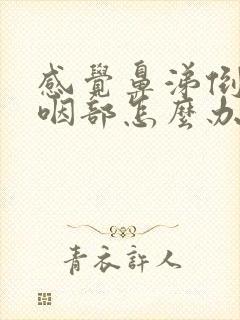 感覺鼻涕倒
咽部怎麼办
青衣許人